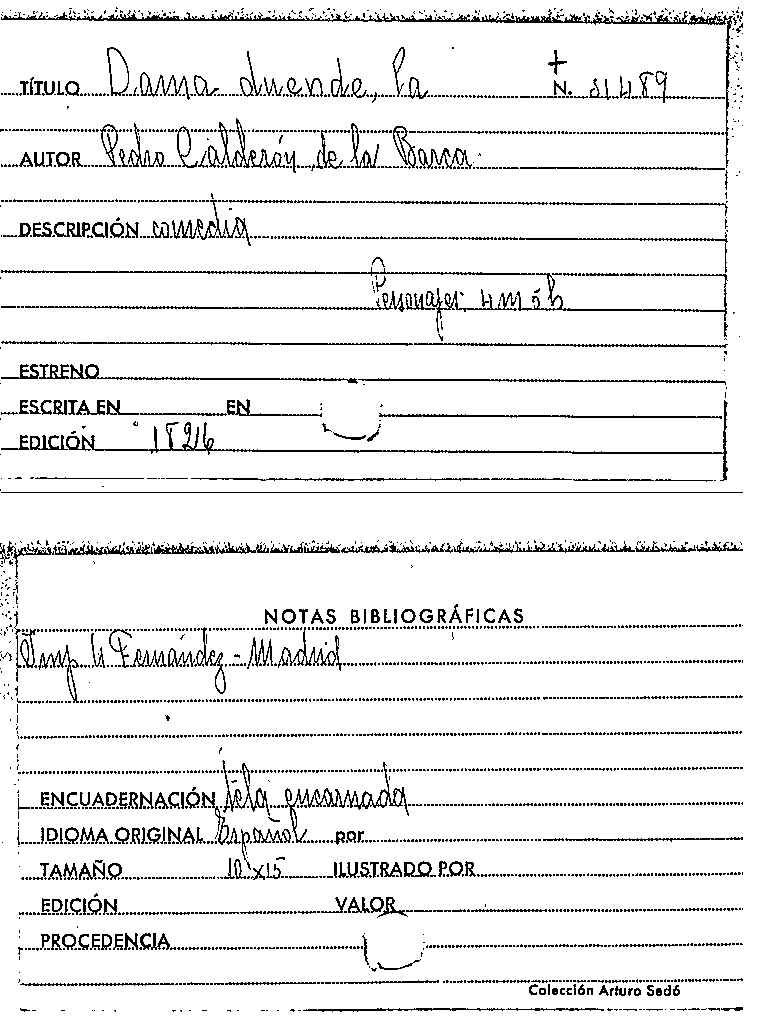 TÍTULO Dama duende, la N. 51489
AUTOR Pedro Calderón de la Barca.
DESCRIPCIÓN comedia
Personajes: 4m 5h
ESTRENO
ESCRITA EN EN
EDICIÓN 1826
NOTAS BIBLIOGRÁFICAS
Imp. Fernández - Madrid
ENCUADERNACIÓN tela encarnada
IDIOMA ORIGINAL Español por
TAMAÑO 10x15 ILUSTRADO POR
EDICIÓN VALOR
PROCEDENCIA
Colección Arturo Sedó